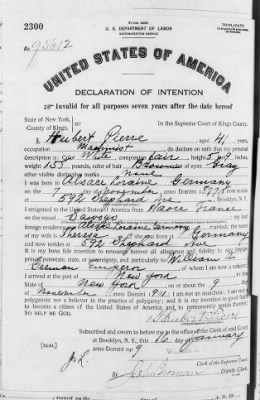 2300
Form 2203
U. S. DEPARTMENT OF LABOR
NATURALIZATION SERVICE
TRIPLICATE
No. 95612
UNITED STATES OF AMERICA
DECLARATION OF INTENTION
Invalid for all purposes seven years after the date hereof
State of New York,
County of Kings, ss:
In the Supreme Court of Kings County.
I, Hubert Pierre, aged 41 years,
occupation Machinist, do declare on oath that my personal
description is: Color White, complexion fair, height 5 feet 9 inches,
weight 155 pounds, color of hair Brown, color of eyes Gray
other visible distinctive marks none
I was born in Alsace Loraine Germany
on the day of November, anno Domini
at 592 Shephard Ave
I emigrated to the United States of America from Havre France
on the vessel
foreign residence was Alsace Loraine Germany married
wife is Theresa Germany
and now resides at 592 Shephard Ave
It is my bona fide intention to renounce forever all allegiance and fidelity to any foreign
prince, potentate, state, or sovereignty, and particularly to William II
German Emperor, of whom I am now a subject
I arrived at the port of New York, in the
State of New York, on or about the 9 day
of November, anno Domini; I am not an anarchist; I am not a
polygamist nor a believer in the practice of polygamy; and it is my intention in good faith
to become a citizen of the United States of America and to permanently reside therein:
SO HELP ME GOD.
Hubert Pierre
Subscribed and sworn to before me in the office of the Clerk of said Court
at Brooklyn, N. Y., this 16 day of January
anno Domini 19
[SEAL]
Clerk of the Supreme Court.
By Deputy Clerk.